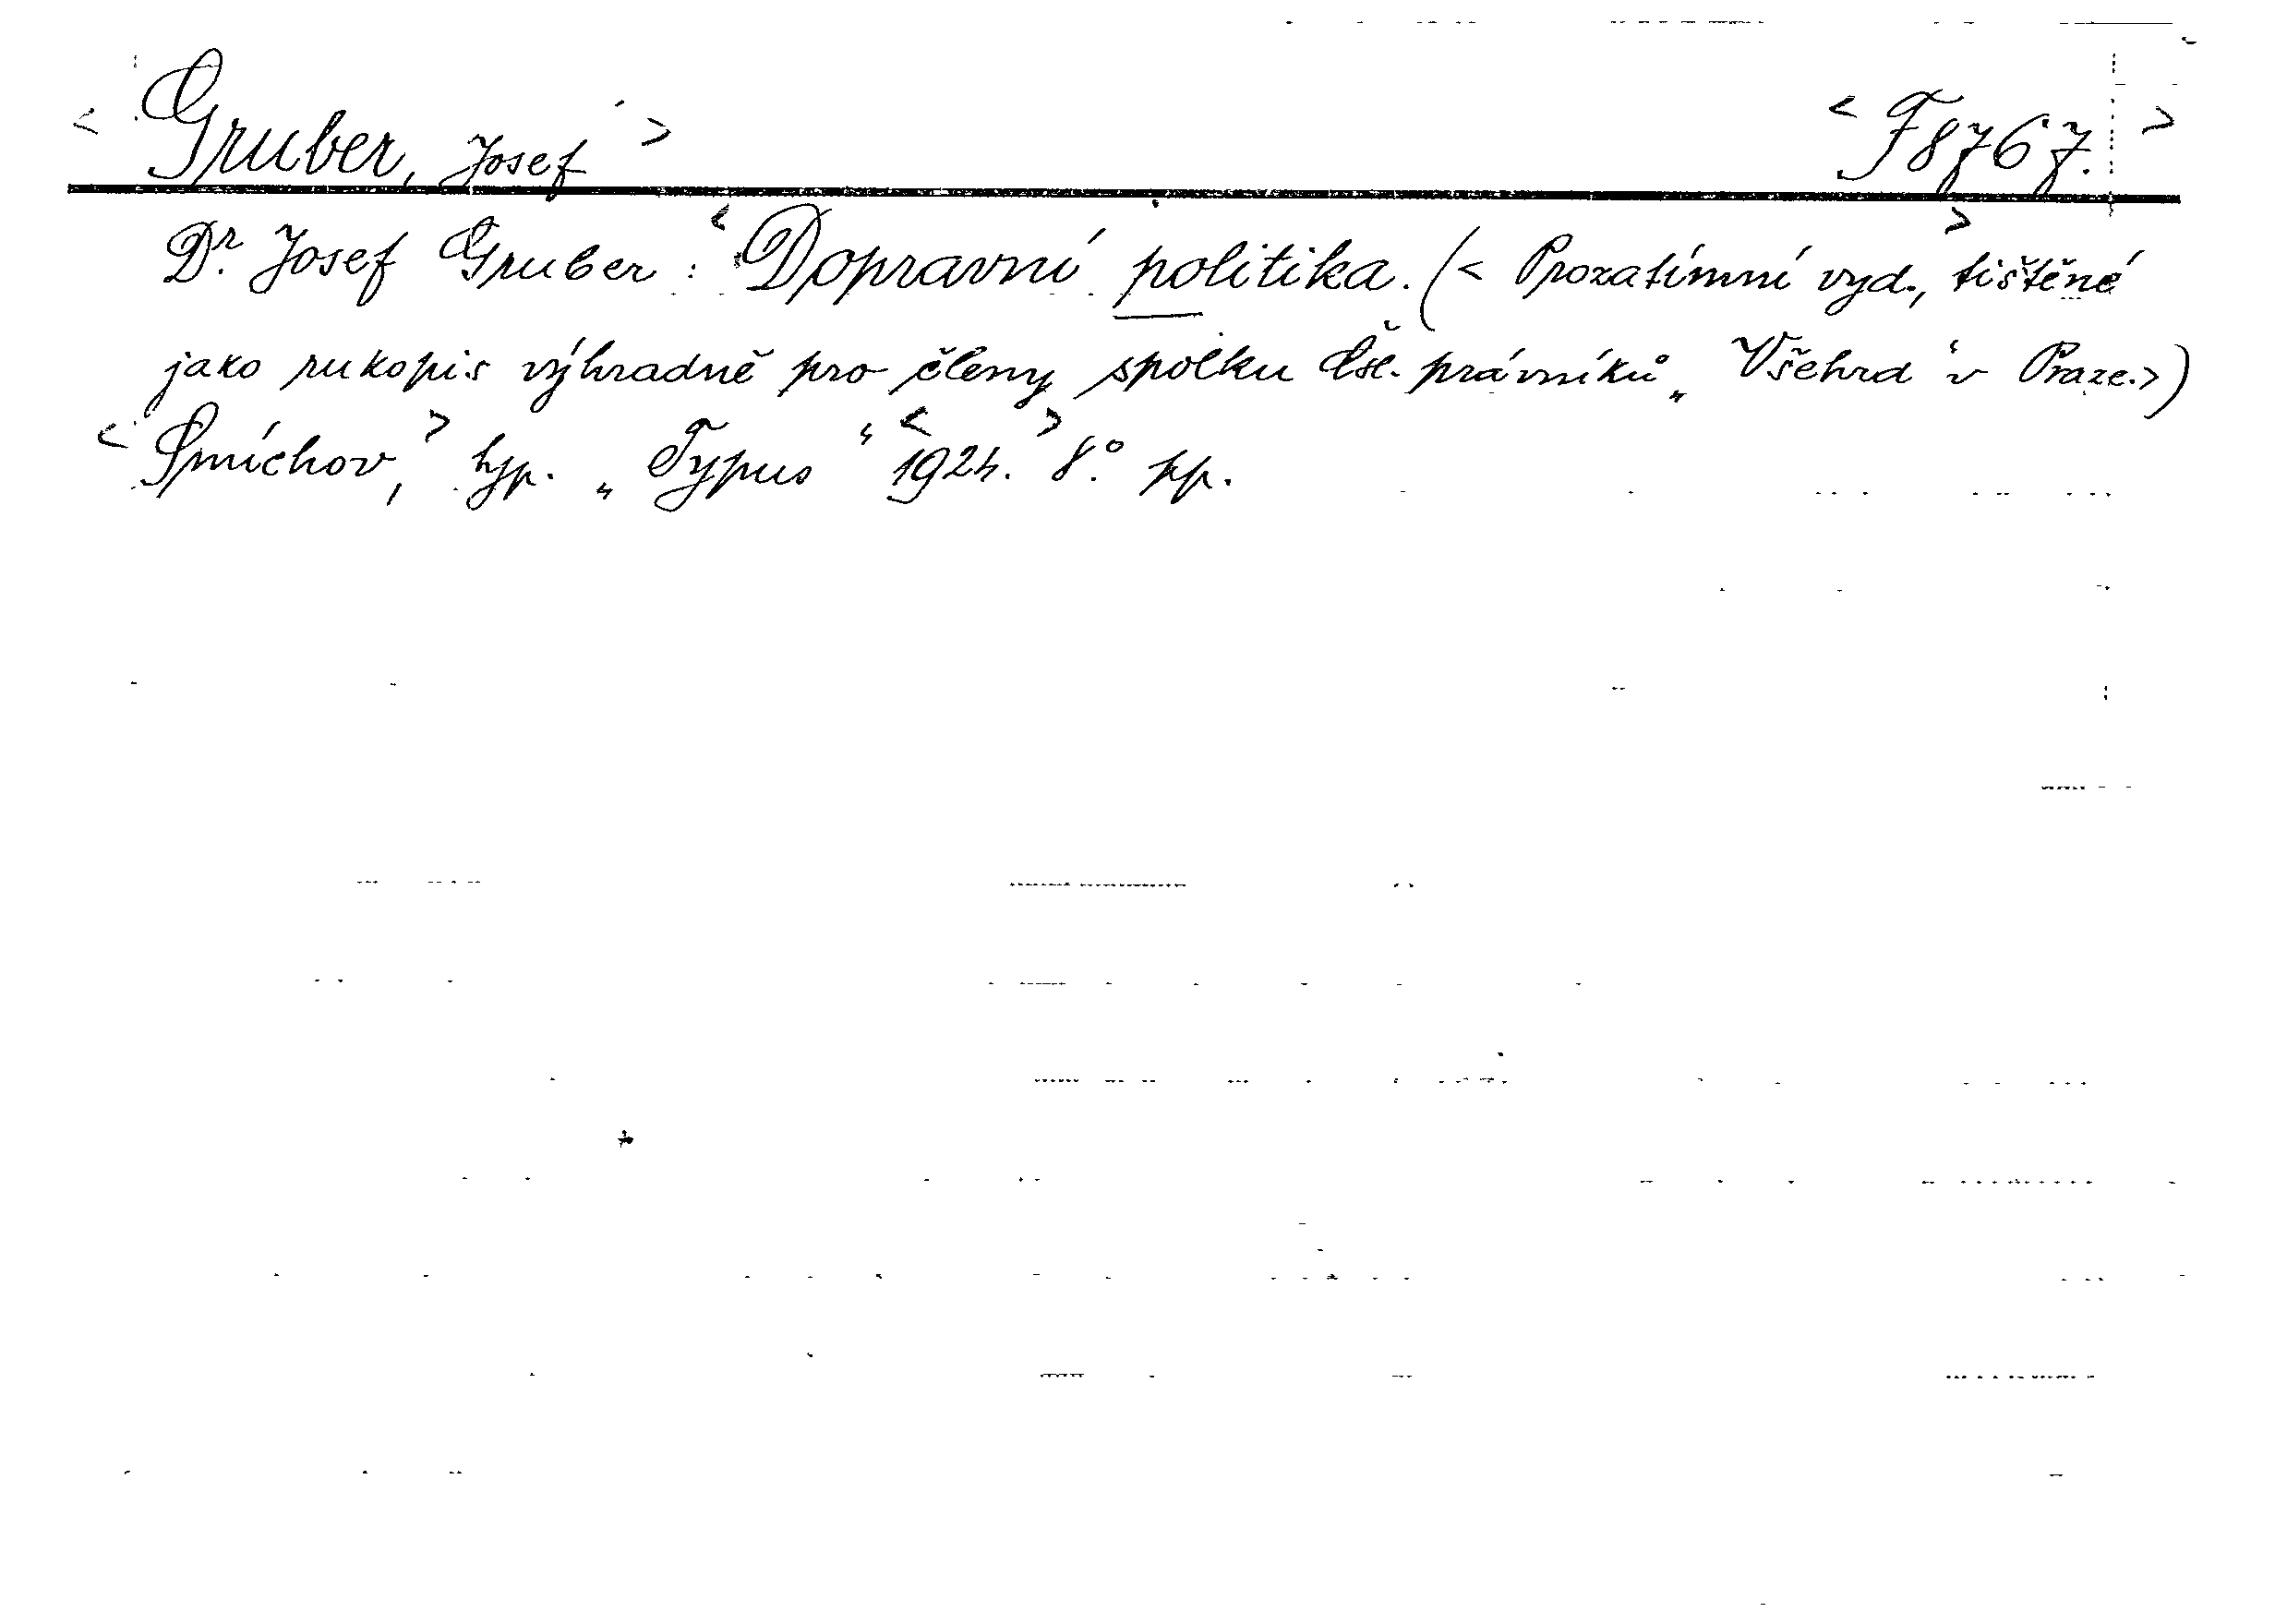 < Gruber, Josef > < F 8767. >
Dr. Josef Gruber : < Dopravní politika. (< Prozatímní vyd., > tištěné
jako rukopis výhradně pro členy spolku čsl. právníků „Všehrd“ v Praze.>)
< Smíchov, > typ. „Typus“ < 1924. > 8°. pp.